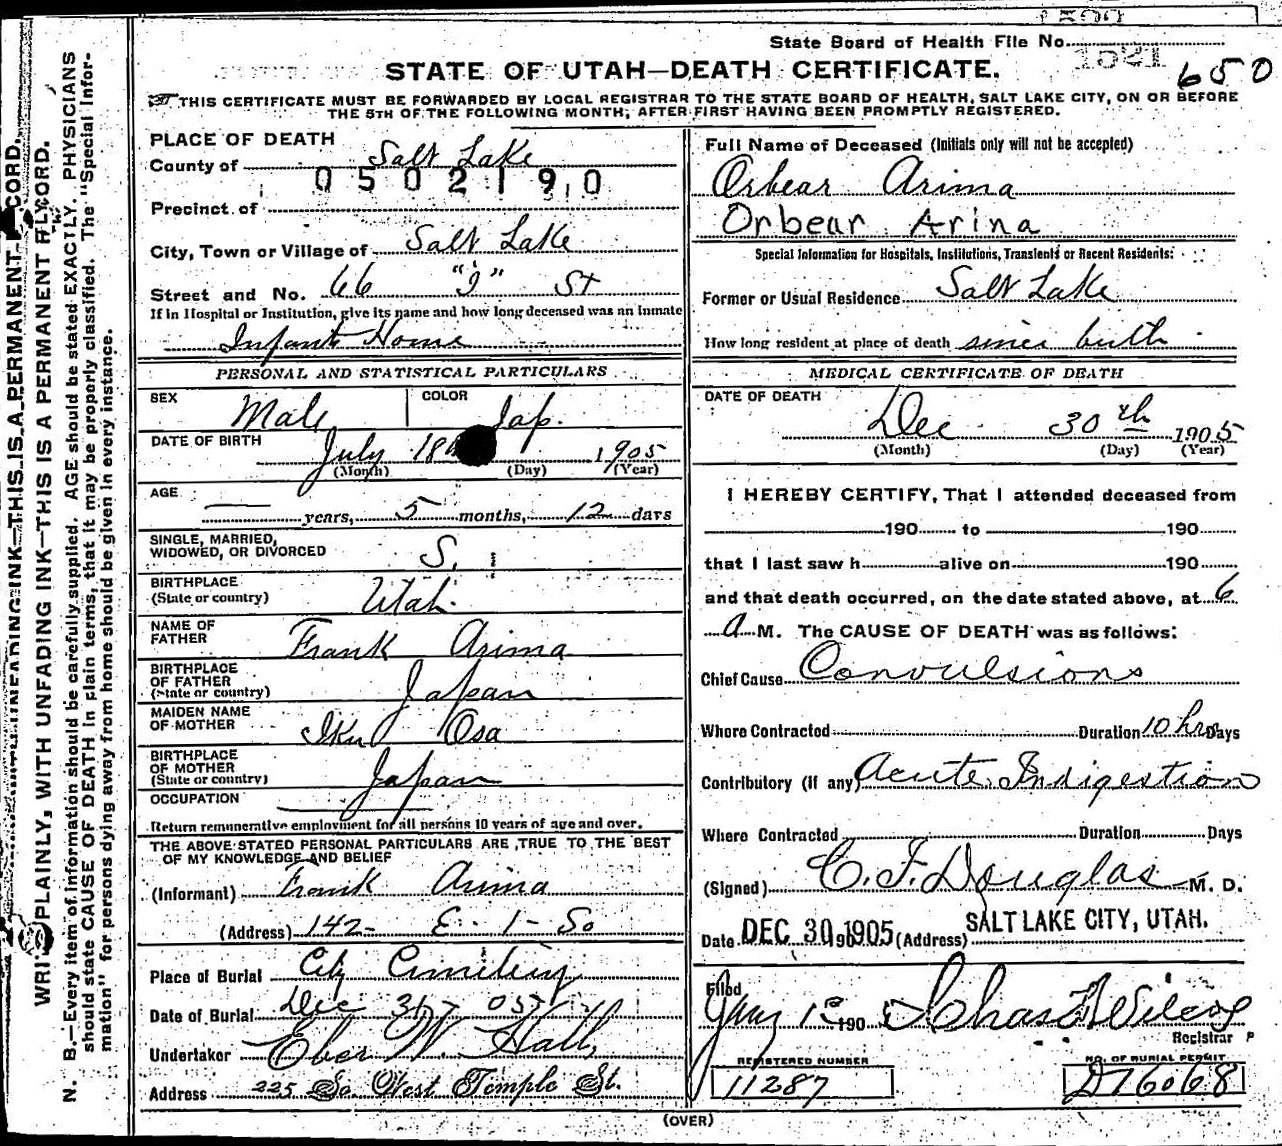 State Board of Health File No. 1521
650
STATE OF UTAH—DEATH CERTIFICATE.
THIS CERTIFICATE MUST BE FORWARDED BY LOCAL REGISTRAR TO THE STATE BOARD OF HEALTH, SALT LAKE CITY, ON OR BEFORE
THE 5TH OF THE FOLLOWING MONTH, AFTER FIRST HAVING BEEN PROMPTLY REGISTERED.
PLACE OF DEATH
County of Salt Lake
0502190
Precinct of
City, Town or Village of Salt Lake
Street and No. 66 "J" St
If in Hospital or Institution, give its name and how long deceased was an inmate
Infants Home
PERSONAL AND STATISTICAL PARTICULARS
SEX Male COLOR Jap.
DATE OF BIRTH July 18 1905
(Month) (Day) (Year)
AGE — years, 5 months, 12 days
SINGLE, MARRIED,
WIDOWED, OR DIVORCED S.
BIRTHPLACE
(State or country) Utah.
NAME OF
FATHER Frank Arima
BIRTHPLACE
OF FATHER
(State or country) Japan
MAIDEN NAME
OF MOTHER Iku Osa
BIRTHPLACE
OF MOTHER
(State or country) Japan
OCCUPATION
Return remunerative employment for all persons 10 years of age and over.
THE ABOVE STATED PERSONAL PARTICULARS ARE TRUE TO THE BEST
OF MY KNOWLEDGE AND BELIEF
(Informant) Frank Arima
(Address) 142- E. 1- So
Place of Burial City Cemetery
Date of Burial Dec 31- 05
Undertaker Eber W. Hall
Address 225 So West Temple St.
Full Name of Deceased (Initials only will not be accepted)
Orbear Arima
Orbear Arina
Special Information for Hospitals, Institutions, Transients or Recent Residents:
Former or Usual Residence Salt Lake
How long resident at place of death since birth
MEDICAL CERTIFICATE OF DEATH
DATE OF DEATH
Dec 30th 1905
(Month) (Day) (Year)
I HEREBY CERTIFY, That I attended deceased from
190 to 190
that I last saw h alive on 190
and that death occurred, on the date stated above, at 6
A M. The CAUSE OF DEATH was as follows:
Chief Cause Convulsions
Where Contracted Duration 10 hrs Days
Contributory (if any) Acute Indigestion
Where Contracted Duration Days
(Signed) C. F. Douglas M. D.
Date DEC 30 1905 (Address) SALT LAKE CITY, UTAH.
Filed
Jany 1 190 Chas F Wilcox
Registrar
REGISTERED NUMBER
11287
NO. OF BURIAL PERMIT
D76068
(OVER)
WRITE PLAINLY, WITH UNFADING INK—THIS IS A PERMANENT RECORD.
N. B.—Every item of information should be carefully supplied. AGE should be stated EXACTLY. PHYSICIANS
should state CAUSE OF DEATH in plain terms, that it may be properly classified. The "Special Infor-
mation" for persons dying away from home should be given in every instance.